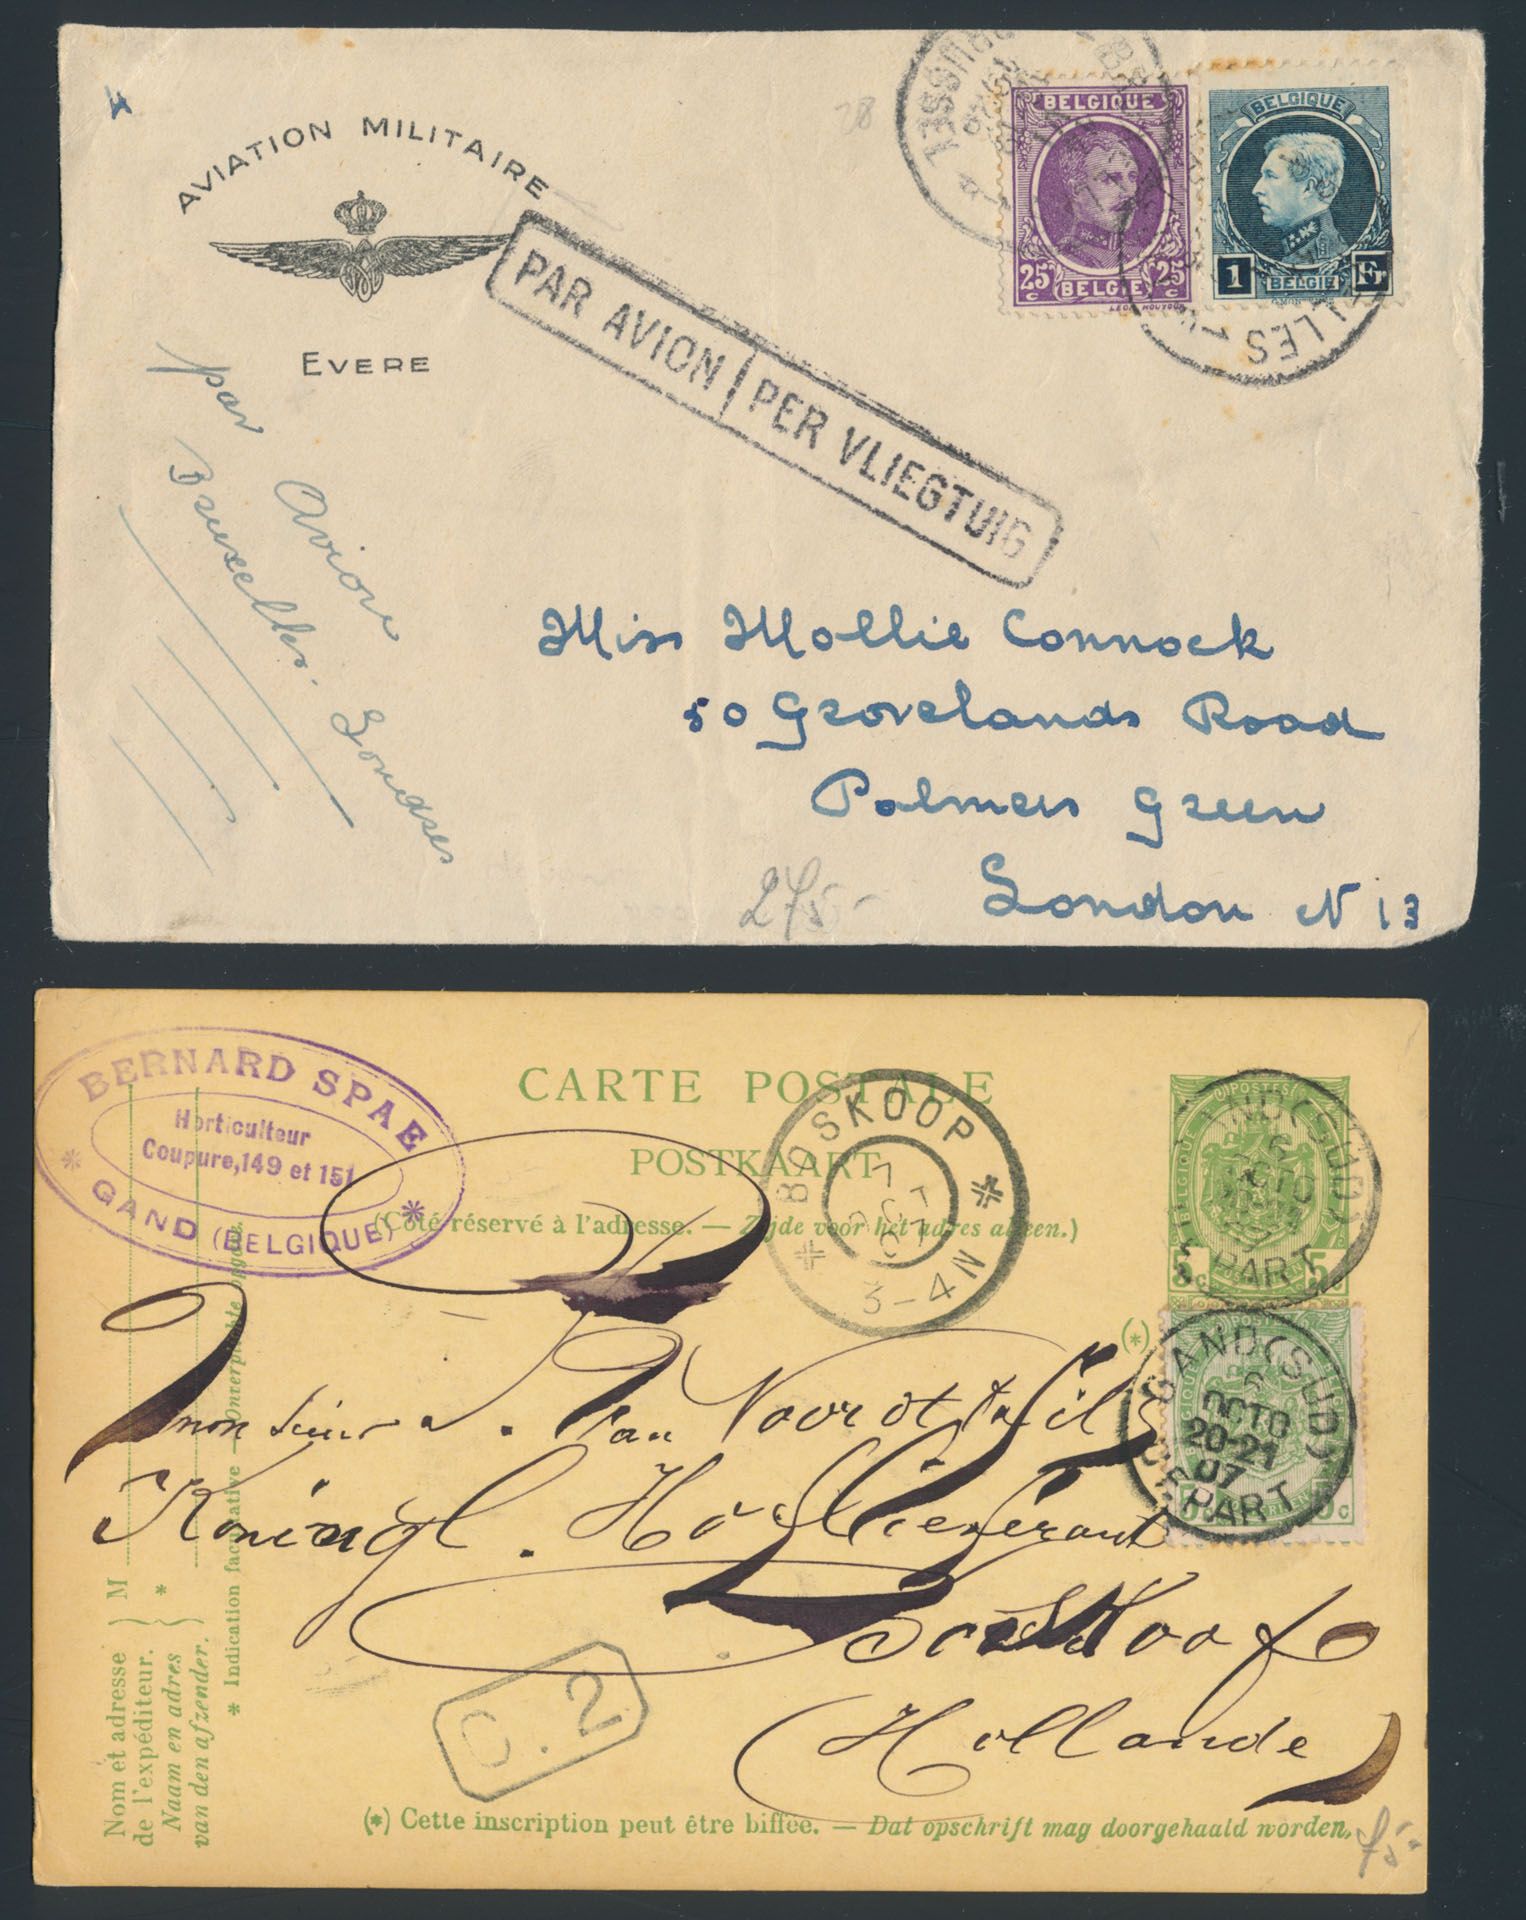 AVIATION MILITAIRE
EVERE
PAR AVION / PER VLIEGTUIG
BELGIQUE
25c 25c
BELGIE
BELGIQUE
1 Fr
BELGIE
par avion
Bruxelles. Londres
Miss Mollie Connock
50 Grovelands Road
Palmers Green
London N 13
275-
28
BERNARD SPAE
Horticulteur
Coupure, 149 et 151
GAND (BELGIQUE)
CARTE POSTALE
POSTKAART
(Côté réservé à l'adresse. — Zijde voor het adres alleen.)
BOSKOOP
7
OCT
07
3-4N
POSTES
BELGIQUE
5c 5c
GAND (SUD)
6
OCTO
20-21
07
DEPART
(*)
Monsieur J. Van Noordt & Fils
Koningl. Hofleverant
Boskoop
Hollande
C.2
Nom et adresse
de l'expéditeur.
Naam en adres
van den afzender.
M
*
* Indication facultative — Onverplichte opgave.
(*) Cette inscription peut être biffée. — Dat opschrift mag doorgehaald worden.